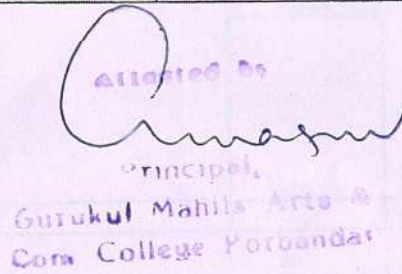 Attested by
Principal,
Gurukul Mahila Arts &
Com College Porbandar